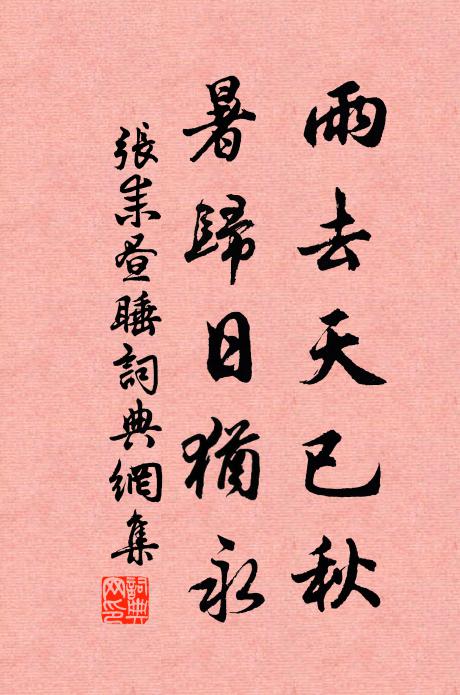 雨去天已秋
暑歸日猶永
張耒晝睡詞典網集
詞典
网印